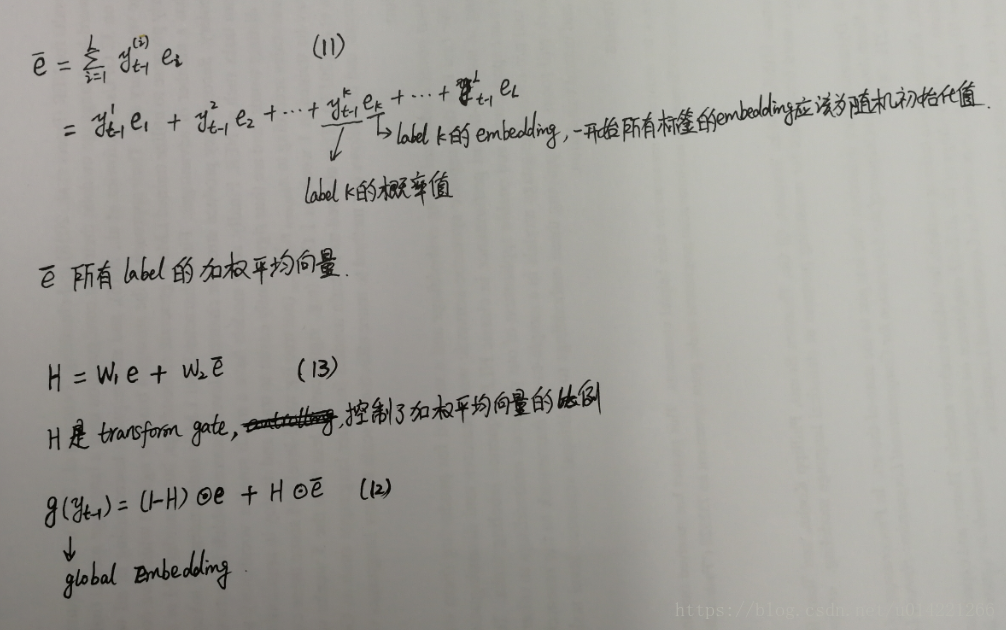 ē = Σ_{i=1}^{L} y_{t-1}^{(i)} e_i (11)
= y_{t-1}^1 e_1 + y_{t-1}^2 e_2 + ⋯ + y_{t-1}^k e_k + ⋯ + y_{t-1}^L e_L
→ label k的embedding,一开始所有标签的embedding应该为随机初始化值
label k的概率值
ē 所有label的加权平均向量.
H = W₁e + W₂ē (13)
H是transform gate, 控制了加权平均向量的比例
g(y_{t-1}) = (1-H)⊙e + H⊙ē (12)
↓
global Embedding.